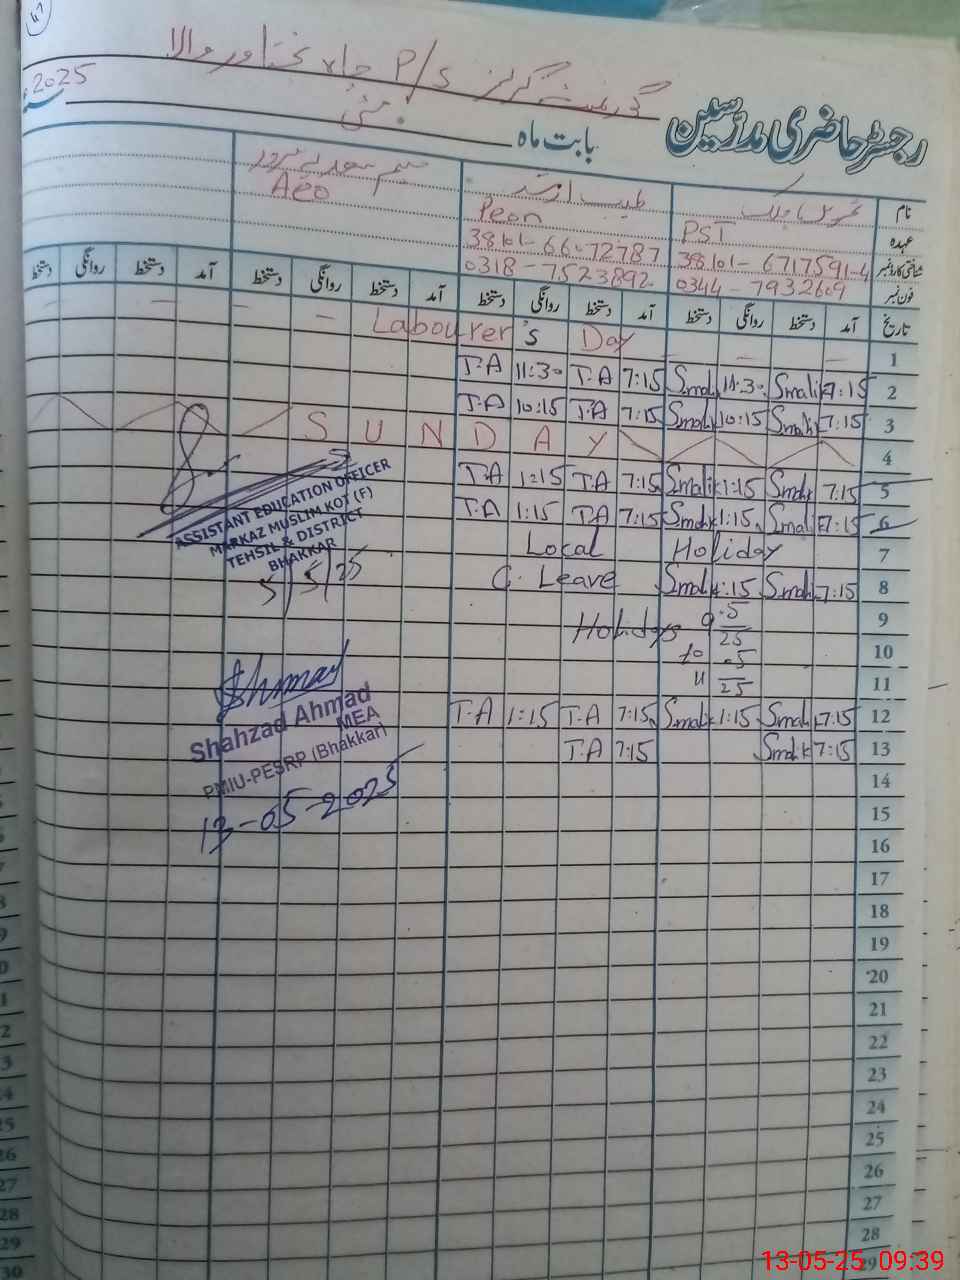 47
گورنمنٹ گرلز P/S چاہ بختاور والا
رجسٹر حاضری مدرسین
بابت ماہ مئی 2025
نام
طیب ارشد
عہدہ PST Peon Aeo
شناختی کارڈ نمبر 38101-6717591-4 38101-6607278 7
فون نمبر 0344-7932609 0318-7523892
تاریخ آمد دستخط روانگی دستخط آمد دستخط روانگی دستخط آمد دستخط روانگی دستخط آمد دستخط روانگی دستخط
1 Labourer's Day
2 7:15 Smalik 11:30 Smalik 7:15 T.A 11:30 T.A
3 7:15 Smalik 10:15 Smalik 7:15 T.A 10:15 T.A
4 SUNDAY
5 7:15 Smalik 1:15 Smalik 7:15 T.A 1:15 T.A
6 7:15 Smalik 1:15 Smalik 7:15 T.A 1:15 T.A
7 Local Holiday
8 7:15 Smalik 1:15 Smalik C. Leave
9 Holidays 9.5/25
10 to
11 11.05/25
12 7:15 Smalik 1:15 Smalik 7:15 T.A 1:15 T.A
13 7:15 Smalik 7:15 T.A
14
15
16
17
18
19
20
21
22
23
24
25
26
27
28
29
ASSISTANT EDUCATION OFFICER
MARKAZ MUSLIM KOT (F)
TEHSIL & DISTRICT
BHAKKAR
5/5/25
Shahzad Ahmad
MEA
PMIU-PESRP (Bhakkar)
13-05-2025
13-05-25 09:39